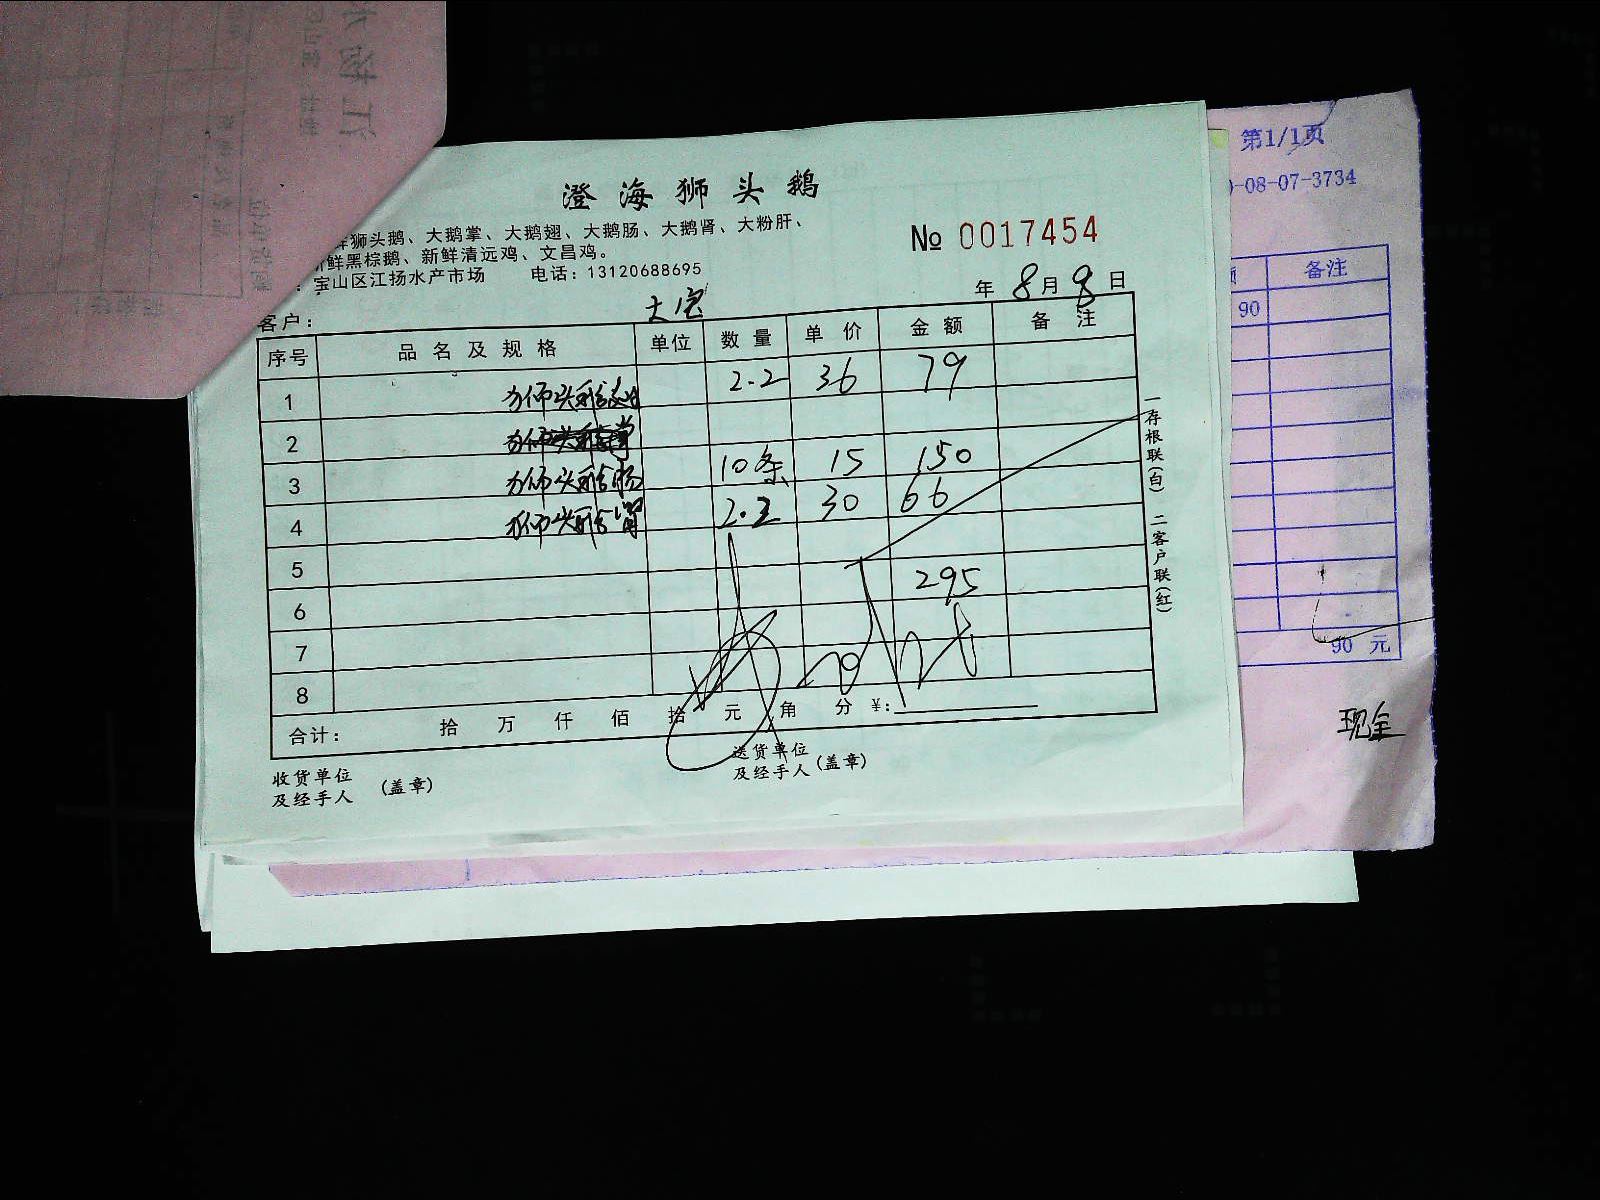 澄海狮头鹅
狮头鹅、大鹅掌、大鹅翅、大鹅肠、大鹅肾、大粉肝、
鲜黑棕鹅、新鲜清远鸡、文昌鸡。
宝山区江扬水产市场 电话：13120688695
№ 0017454
年 8月 9日
客户：
序号 品名及规格 单位 数量 单价 金额 备注
1 狮头鹅 2.2 36 79
2
3 狮头鹅肠 10条 15 150
4 狮头鹅 2.2 30 66
5
6 295
7
8
合计： 拾 万 仟 佰 拾 元 角 分 ¥:
收货单位
及经手人 (盖章)
送货单位
及经手人(盖章)
一存根联(白) 二客户联(红)
第1/1页
-08-07-3734
备注
90
90 元
现金